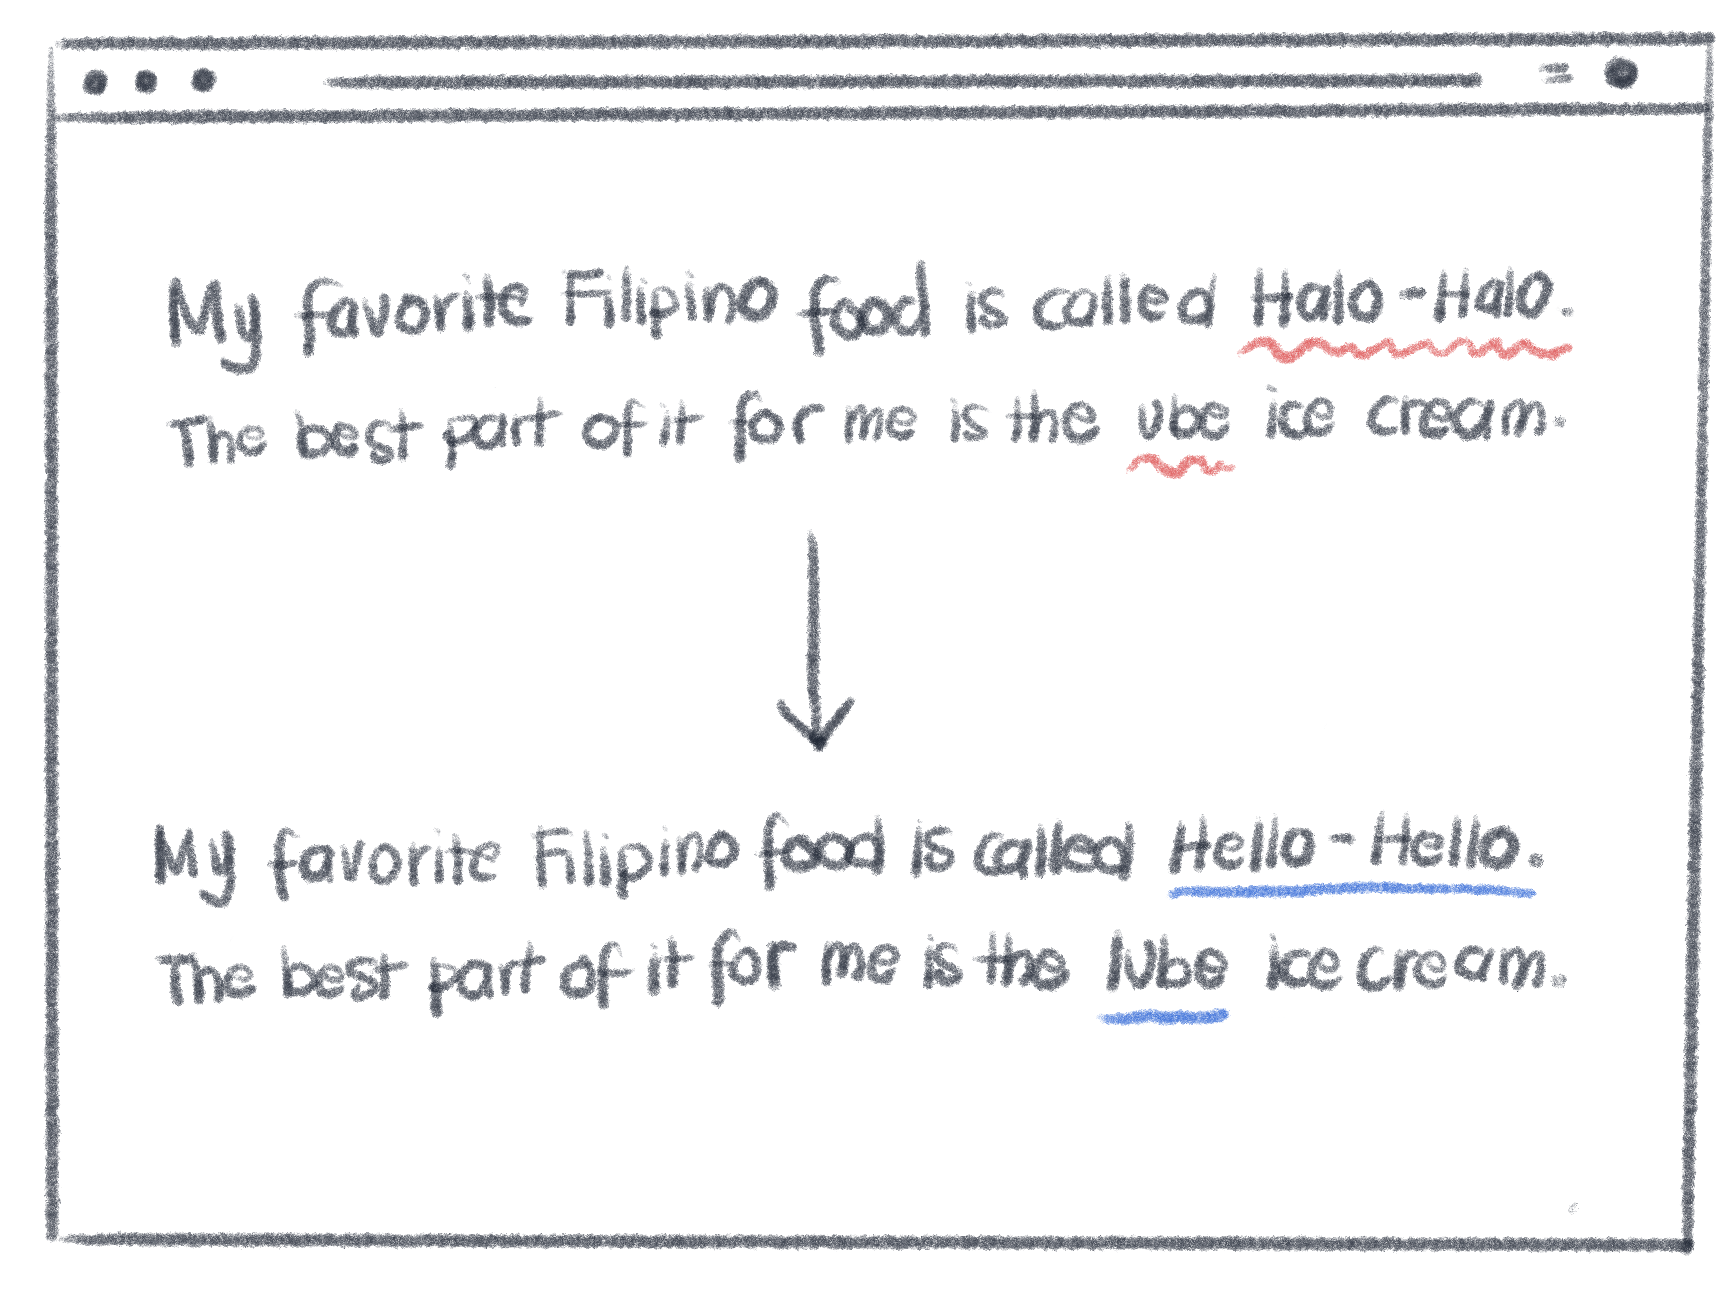 My favorite Filipino food is called Halo-Halo.
The best part of it for me is the ube ice cream.
My favorite Filipino food is called Hello-Hello.
The best part of it for me is the lube ice cream.